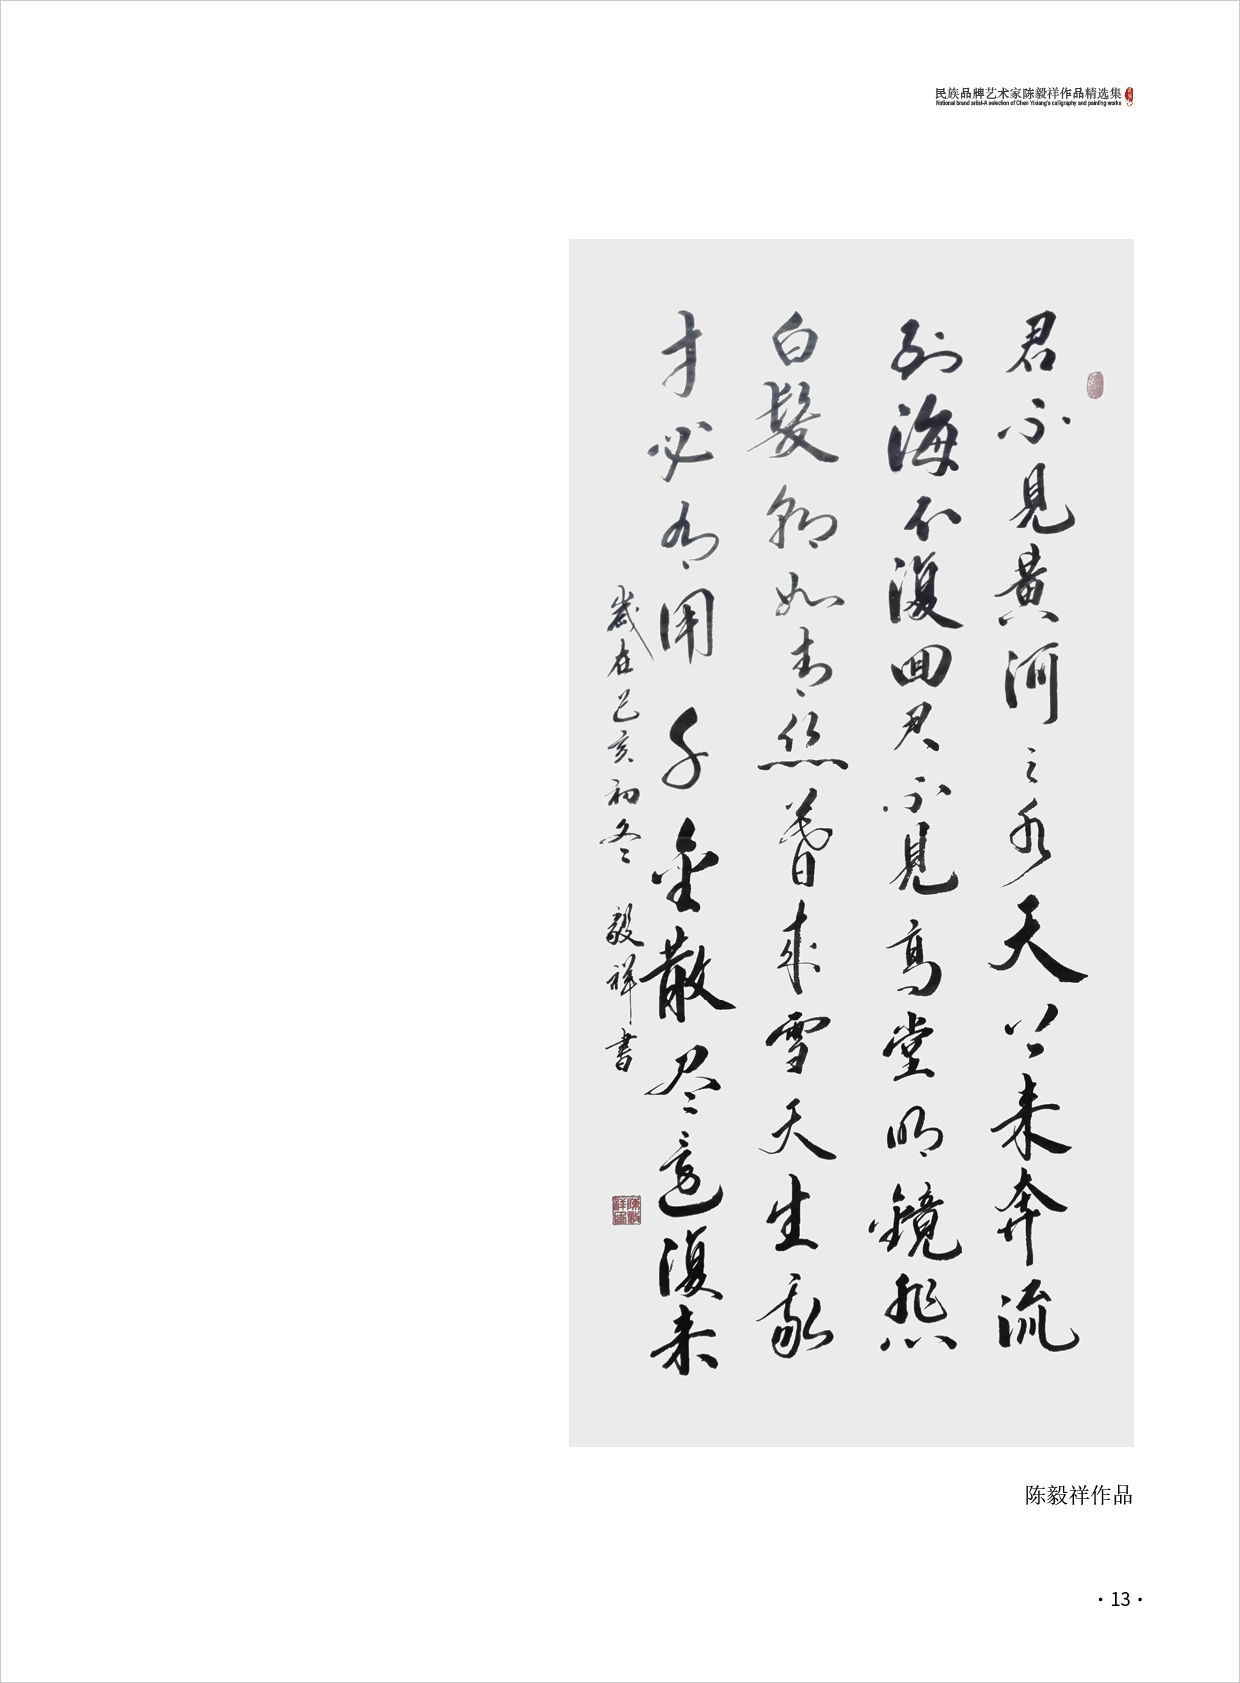 民族品牌艺术家陈毅祥作品精选集
National brand artist-A selection of Chen Yixiang's calligraphy and painting works
君不見黄河之水天上来奔流
到海不復回君不見高堂明鏡悲
白髮朝如青丝暮成雪天生我
才必有用千金散尽還復来
歲在己亥初冬 毅祥書
陈毅祥作品
·13·